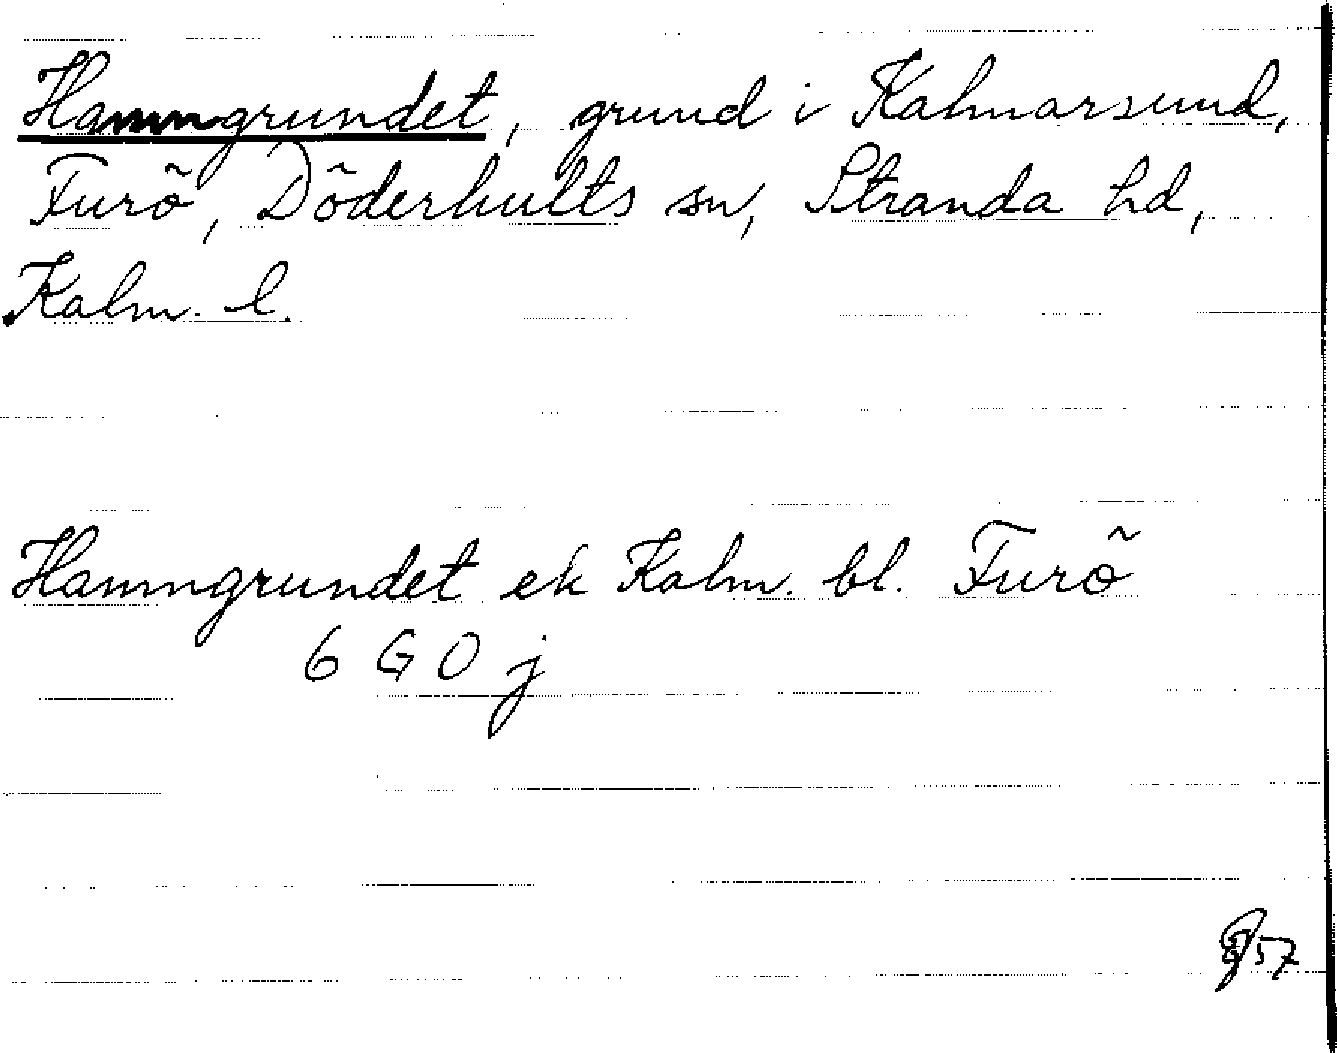 Hamngrundet, grund i Kalmarsund,
Furö, Döderhults sn, Stranda hd,
Kalm. l.
Hamngrundet ek Kalm. bl. Furö
6 G 0 j
57